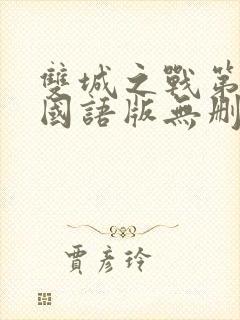 雙城之戰第
國語版無刪
賈彥玲